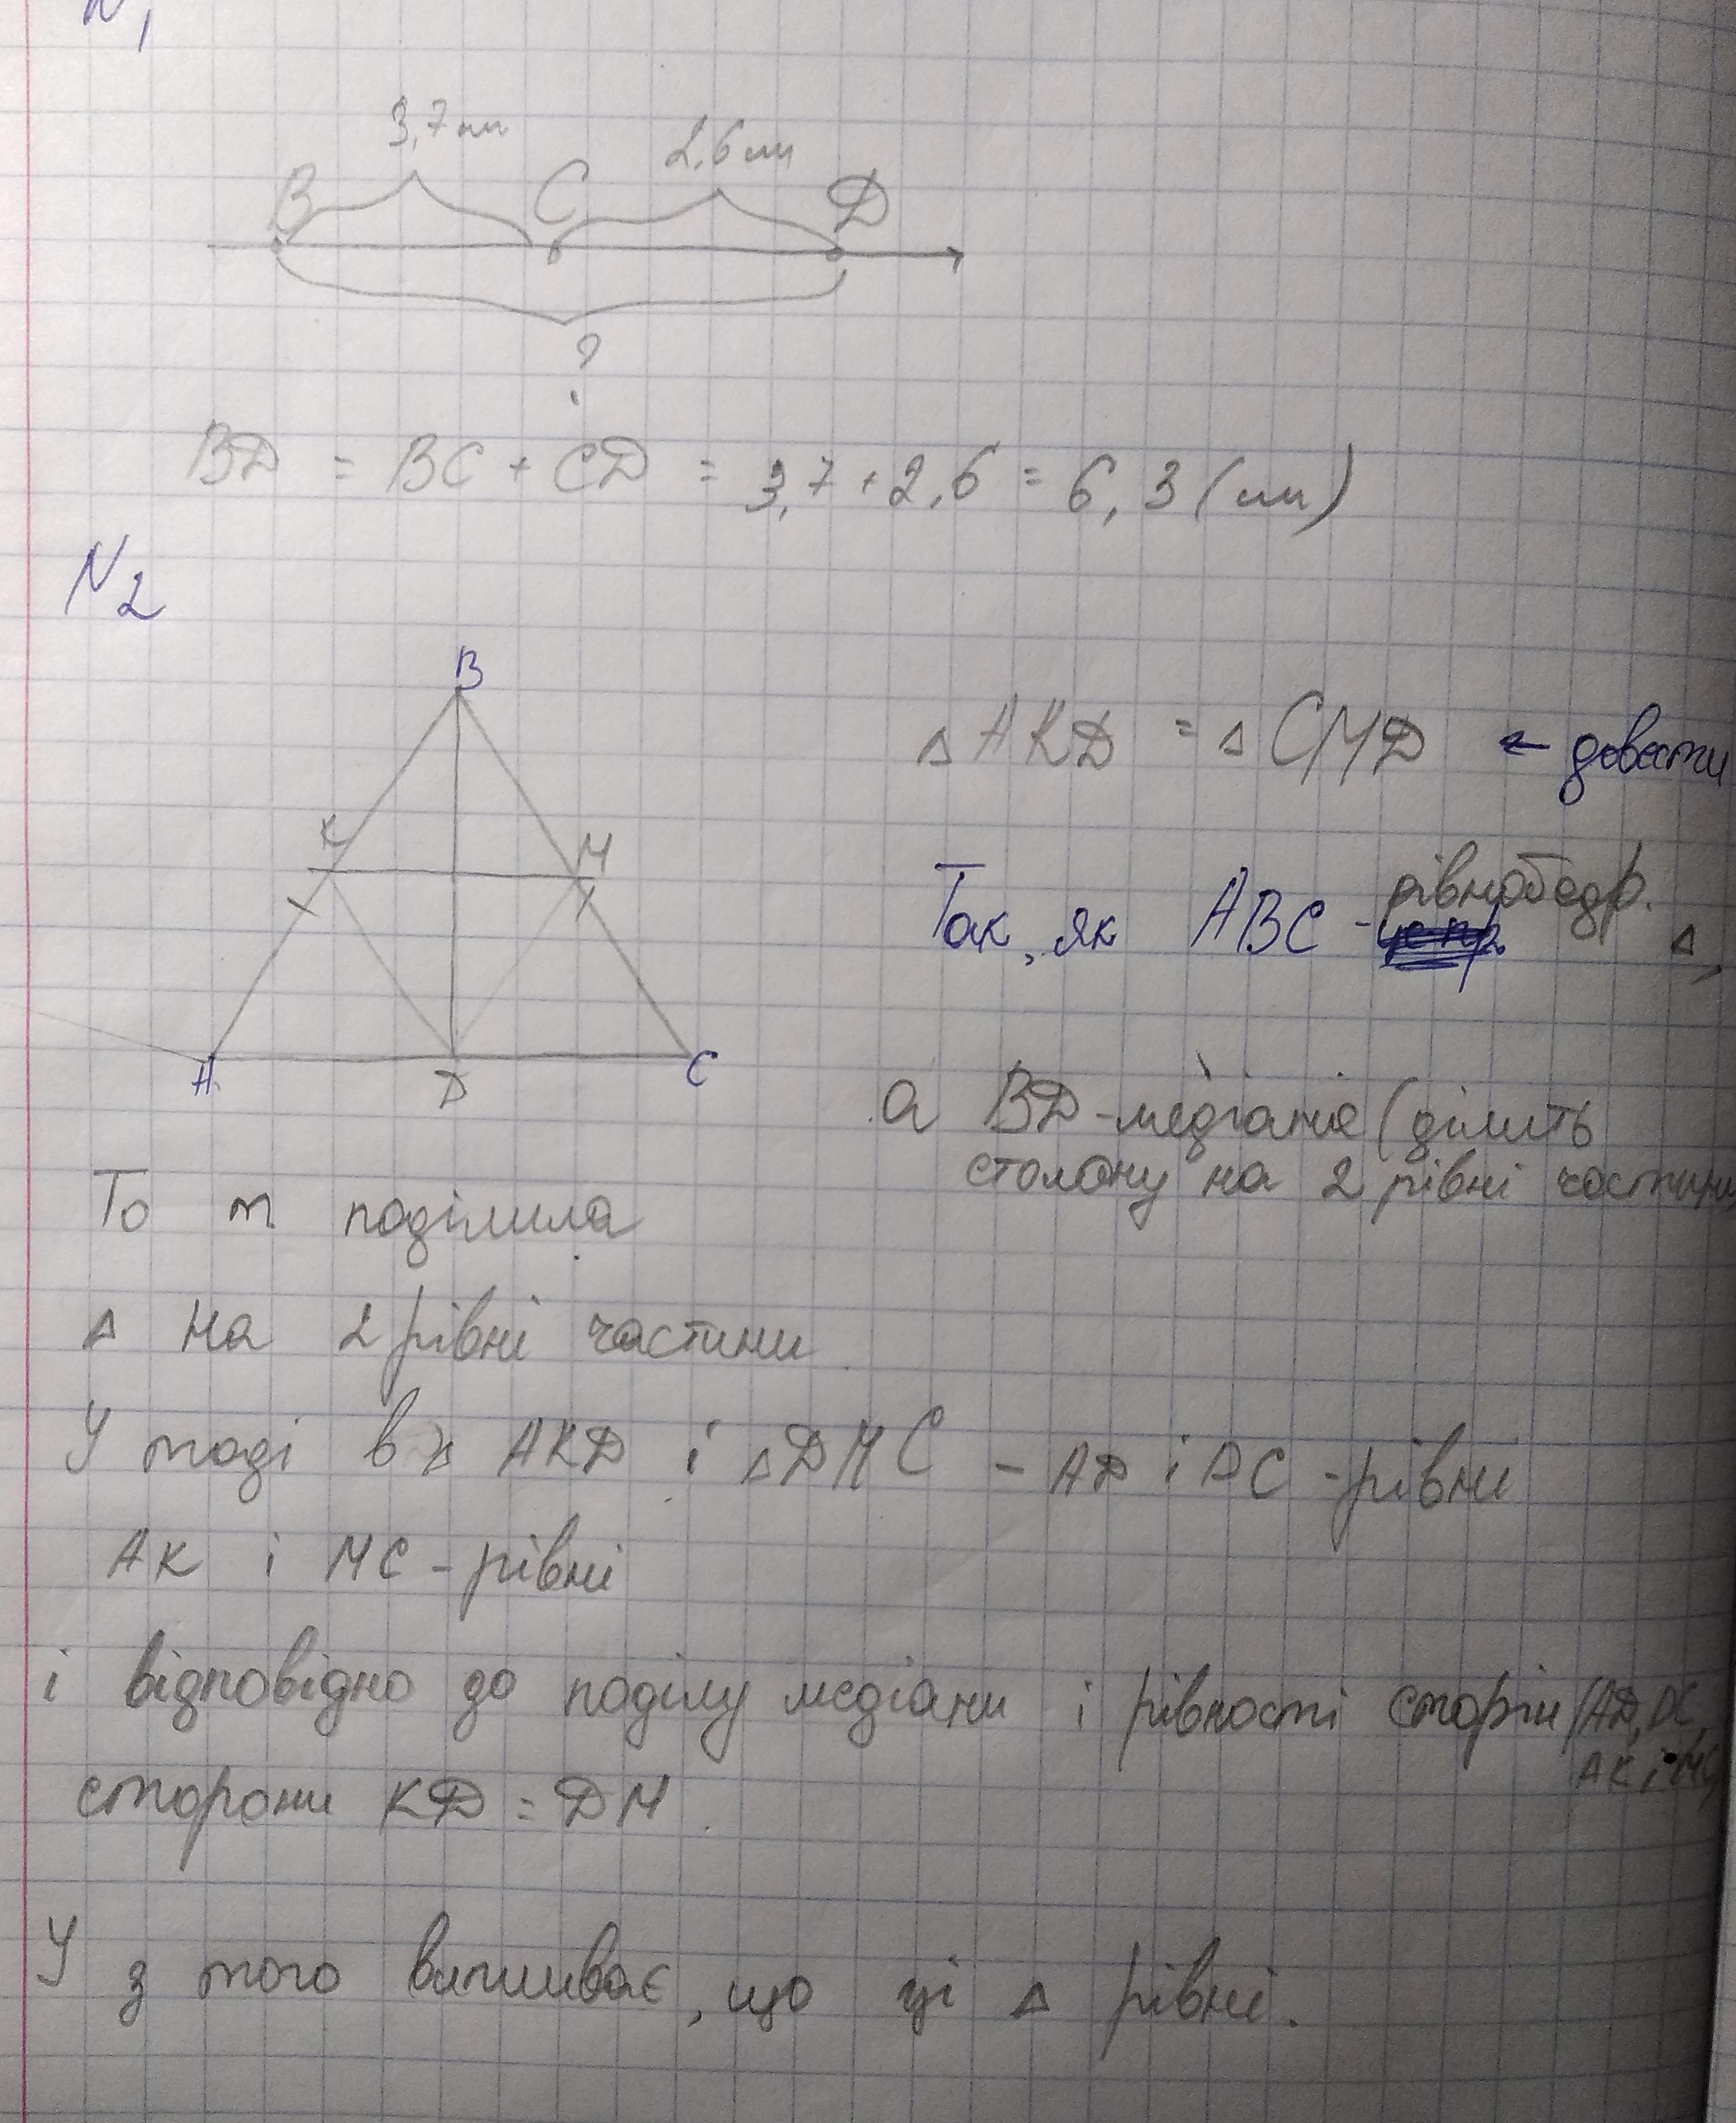 N1
3,7 см 2,6 см
B C D
?
BD = BC + CD = 3,7 + 2,6 = 6,3 (см)
N2
B
K M
A D C
△ AKD = △ CMD ← довести
Так, як ABC - рівнобедр. △,
а BD - медіана (ділить
сторону на 2 рівні частини
То m поділила
△ на 2 рівні частини
У тоді в △ AKD і △ DMC - AD і DC - рівні
AK і MC - рівні
і відповідно до поділу медіани і рівності сторін (AD, DC,
AK і MC)
сторони KD = DM
У з того випливає, що ці △ рівні.